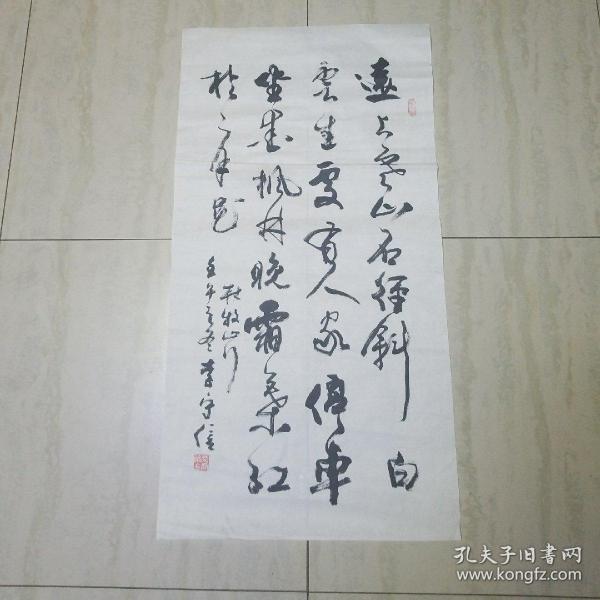 遠上寒山石徑斜白
雲生處有人家停車
坐愛楓林晚霜葉紅
於二月花
杜牧山行
壬午之冬李守信
孔夫子旧书网
www.kongfz.com